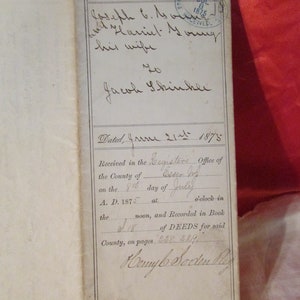 Joseph C. Young
and Harriet Young
his wife
To
Jacob Skinkle
Dated, June 21st 1875
Received in the Register Office of
the County of Essex NJ
on the 8th day of July
A. D. 1875 at o'clock in
the noon, and Recorded in Book
of DEEDS for said
County, on pages
Henry C.